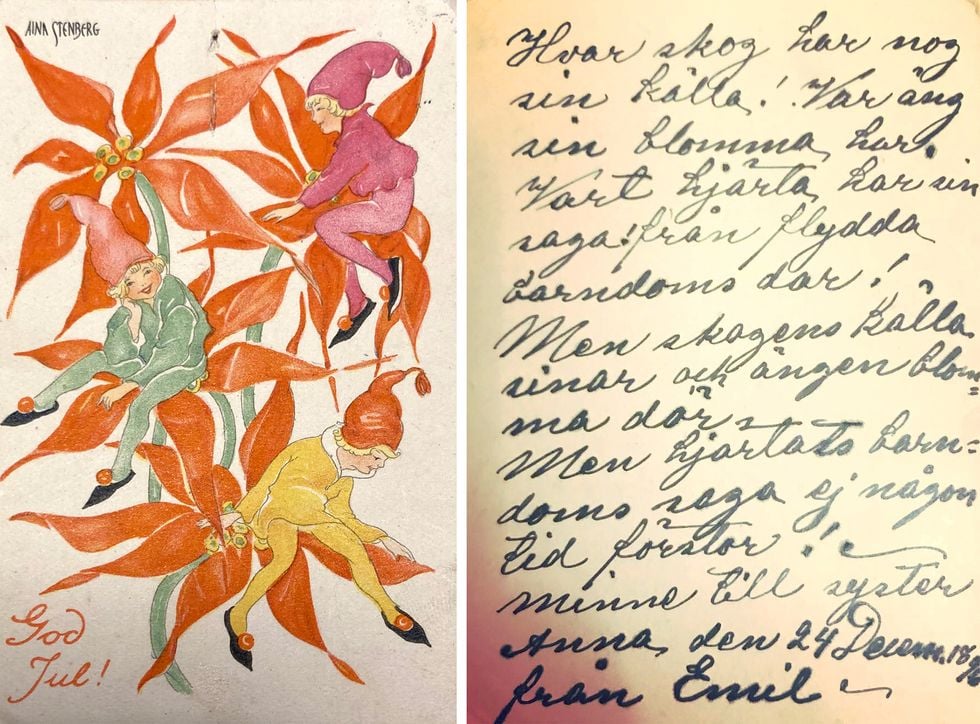 AINA STENBERG
God
Jul!
Hvar skog har nog
sin källa! Var äng
sin blomma har.
Vart hjärta har sin
saga! från flydda
barndoms dar!
Men skogens källa
sinar och ängen blom=
ma dör
Men hjärtats barn=
doms saga ej någon
tid förstör!
Minne till syster
Anna, den 24 Decem.
från Emil